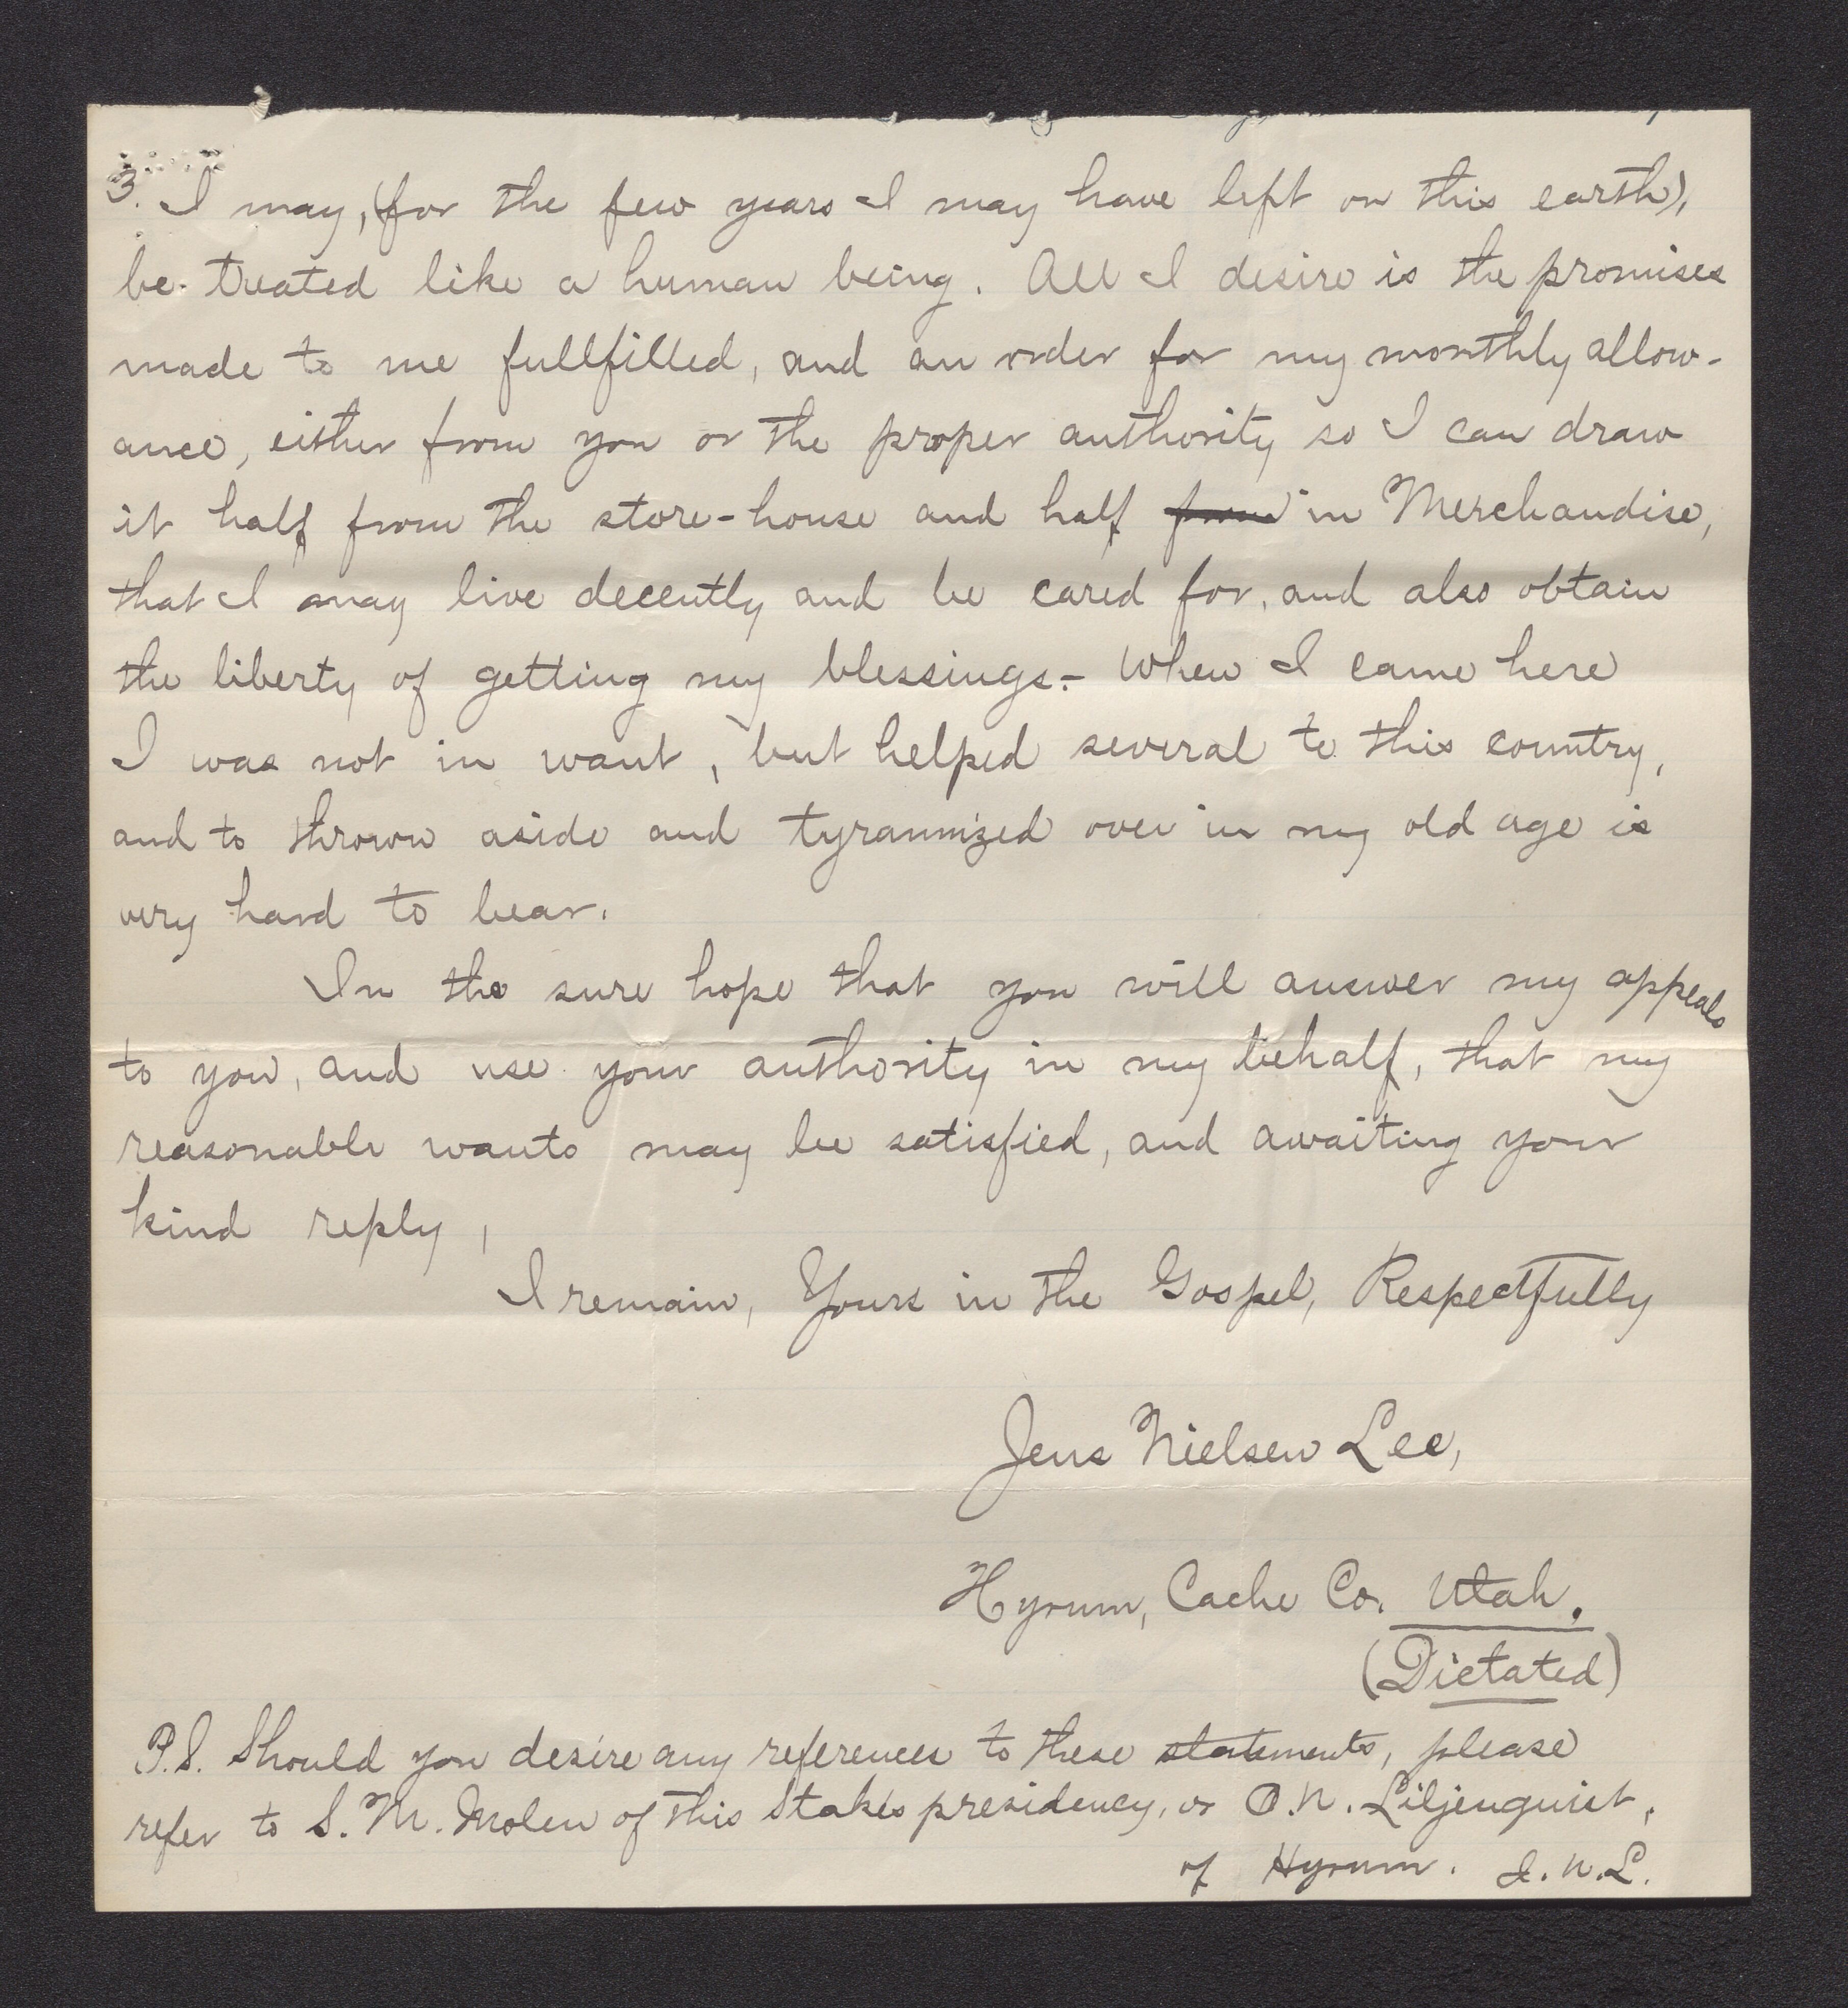 3. I may, (for the few years I may have left on this earth),
be treated like a human being. All I desire is the promises
made to me fullfilled, and an order for my monthly allow-
ance, either from you or the proper authority so I can draw
it half from the store-house and half from in Merchandise,
that I may live decently and be cared for, and also obtain
the liberty of getting my blessings.- When I came here
I was not in want, but helped several to this country,
and to thrown aside and tyrannized over in my old age is
very hard to bear.
In the sure hope that you will answer my appeals
to you, and use your authority in my behalf, that my
reasonable wants may be satisfied, and awaiting your
kind reply,
I remain, Yours in the Gospel, Respectfully
Jens Nielsen Lee,
Hyrum, Cache Co. Utah.
(Dictated)
P.S. Should you desire any references to these statements, please
refer to S. M. Molen of this Stakes presidency, or O. N. Liljenquist,
of Hyrum. J. N. L.